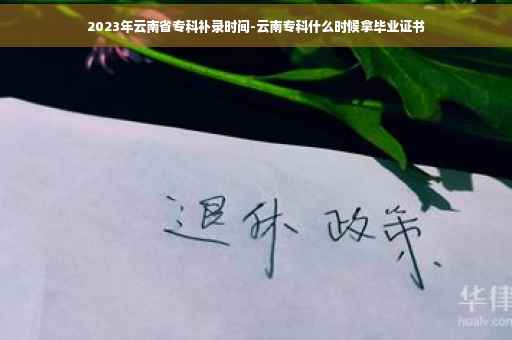 2023年云南省专科补录时间-云南专科什么时候拿毕业证书
退休 政策
华律
hualv.com